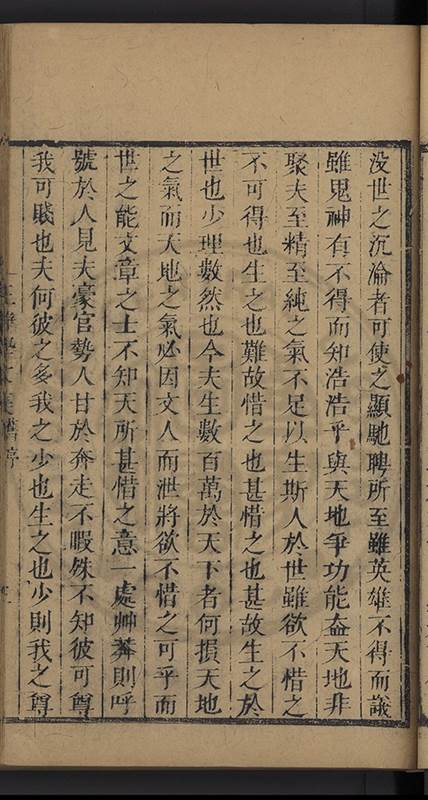 没世之沉淪者可使之顯馳騁所至雖英雄不得而議
雖鬼神有不得而知浩浩乎與天地爭功能盖天地非
聚夫至精至純之氣不足以生斯人於世雖欲不惜之
不可得也生之也難故惜之也甚惜之也甚故生之於
世也少理數然也今夫生數百萬於天下者何損天地
之氣而天地之氣必因文人而泄將欲不惜之可乎而
世之能文章之士不知天所甚惜之意一處艸莽則呼
號於人見夫豪官勢人甘於奔走不暇殊不知彼可尊
我可賤也夫何彼之多我之少也生之也少則我之尊